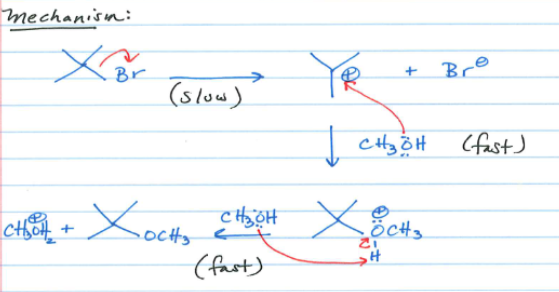 Mechanism:
Br
(slow)
⊕ + Br⊖
CH₃ÖH (fast)
CH₃OH₂⊕ + OCH₃
CH₃ÖH
(fast)
⊕
ÖCH₃
H